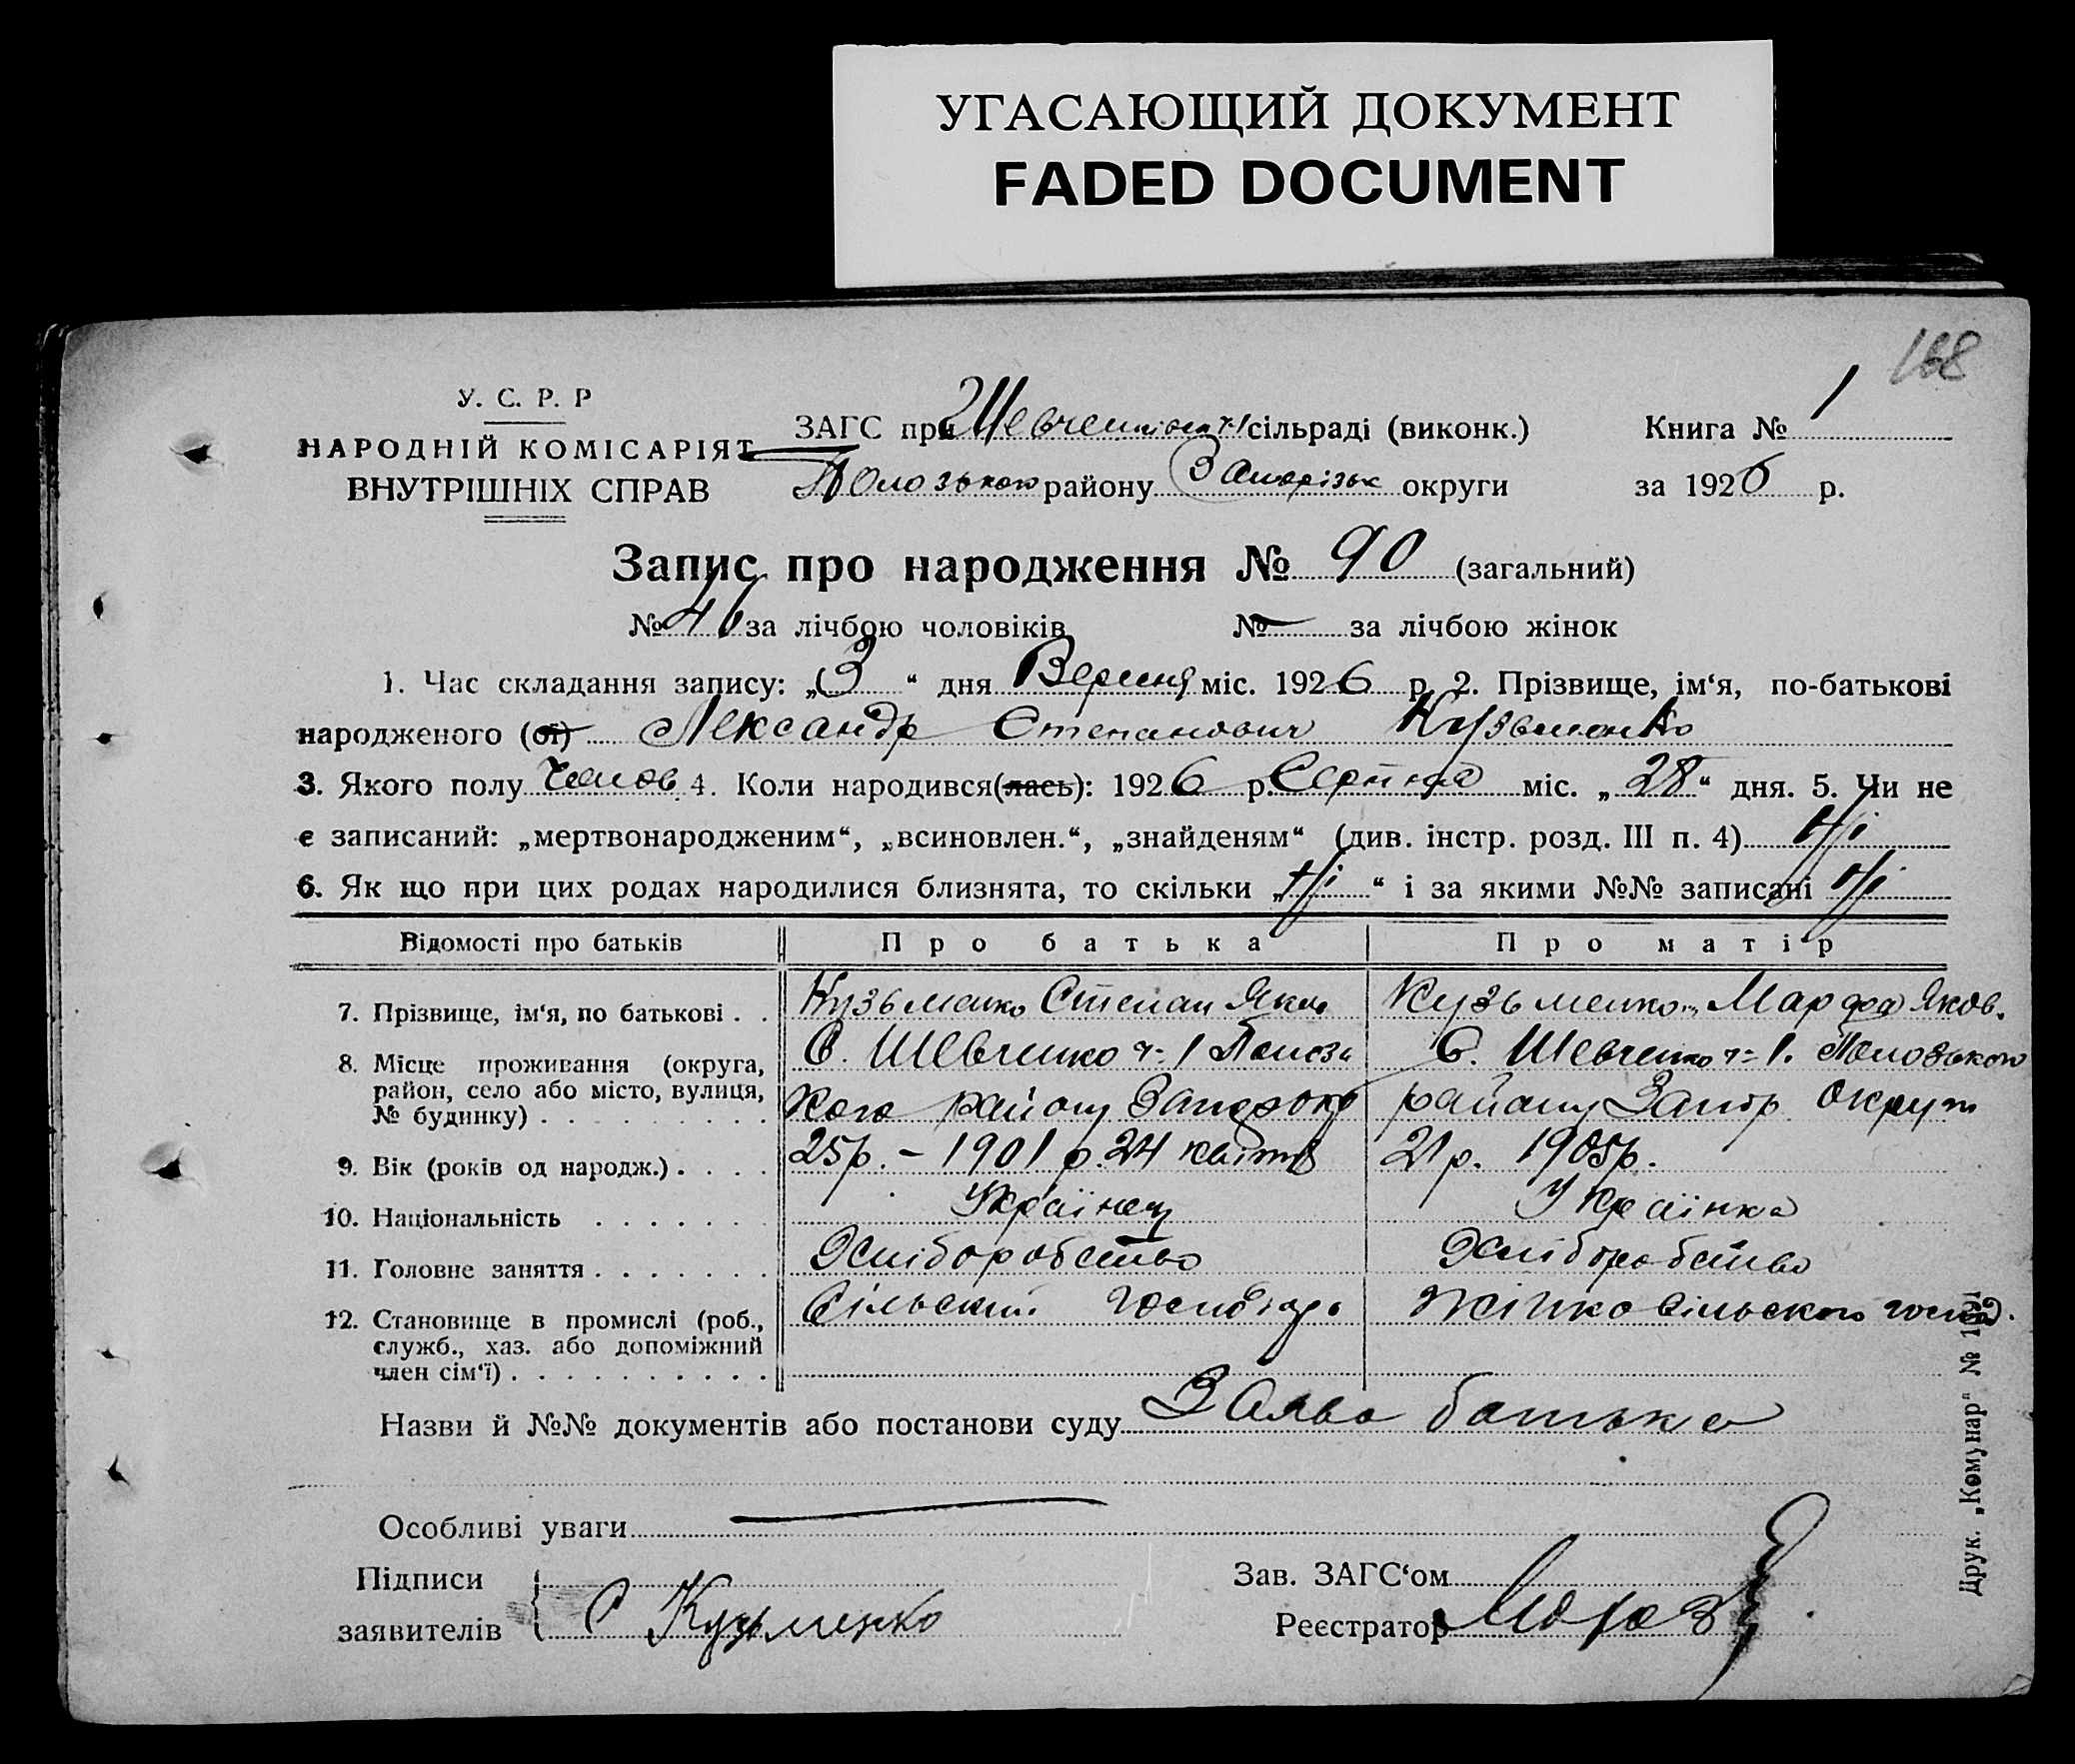 УГАСАЮЩИЙ ДОКУМЕНТ
FADED DOCUMENT
168
У. С. Р. Р
НАРОДНІЙ КОМІСАРІЯТ
ВНУТРІШНІХ СПРАВ
ЗАГС при сільраді (виконк.)
Пологського району Запоріськ округи
Книга № 1
за 1926 р.
Запис про народження № 90 (загальний)
№ 46 за лічбою чоловіків № — за лічбою жінок
1. Час складання запису: „3“ дня Вересня міс. 1926 р. 2. Прізвище, ім‘я, по-батькові
народженого (ої) Лександр Степанович Кузьменко
3. Якого полу Чолов. 4. Коли народився(лась): 1926 р. Серпня міс. „28“ дня. 5. Чи не
є записаний: „мертвонародженим“, „всиновлен.“, „знайденям“ (див. інстр. розд. III п. 4) Ні
6. Як що при цих родах народилися близнята, то скільки „Ні“ і за якими №№ записані Ні
Відомості про батьків Про батька Про матір
7. Прізвище, ім‘я, по батькові . . Кузьменко Степан Яков Кузьменко Марфа Яков.
8. Місце проживання (округа, С. Шевченко ч-1 С. Шевченко ч-1. Пологського
район, село або місто, вулиця, кого району району Запор Округи
№ будинку) . . . . . . . . .
9. Вік (років од народж.) . . . . 25р. – 1901 р. 24 квітня 21р. 1905р.
10. Національність . . . . . . . Українец Українка
11. Головне заняття . . . . . . . Хліборобство Хліборобство
12. Становище в промислі (роб., Сільский господарь Жінка сільського господ.
служб., хаз. або допоміжний
член сім‘ї) . . . . . . . . . .
Назви й №№ документів або постанови суду Заява батька
Особливі уваги
Підписи
заявителів С Кузьменко
Зав. ЗАГС‘ом
Реєстратор Мороз
Друк. „Комунар“ №